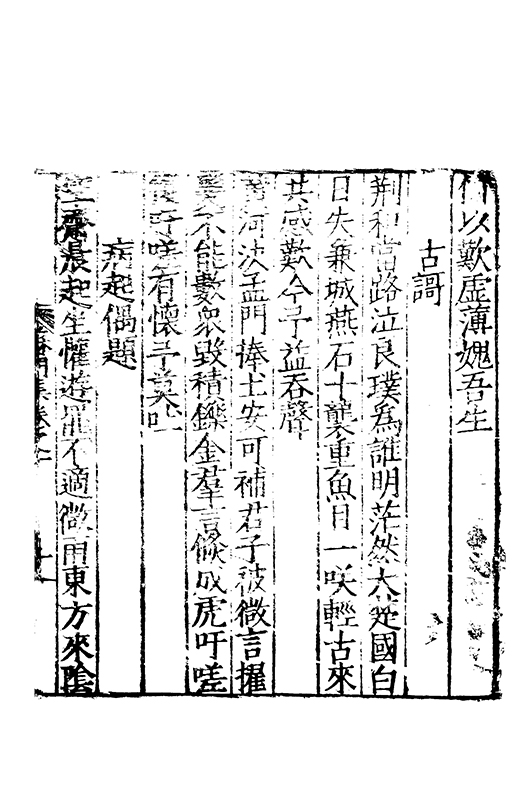 何以歎虛薄媿吾生
古謌
荆和當路泣良璞為誰明茫然大楚國白
日失兼城燕石十襲重魚目一咲輕古來
共感歎令予益吞聲
黄河決孟門捧土安可補君子被微言擢
髮不能數衆毀積鑠金羣言倐成虎吁嗟
吁嗟有懷予莫吐
病起偶題
齋晨起坐懽遊罷不適微雨東方來陰